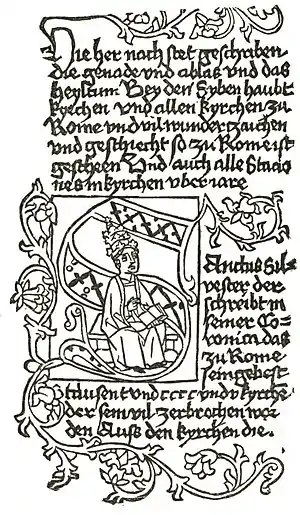 Hie her nach stet geschriben
die genade vnd ablas vnd das
heyltum Bey den Syben haubt
kyrchen vnd allen kyrchen zu
Rome vnd vil wunderzaichen
vnd geschiecht so zu Rome ist
gescheen Vnd auch alle Stacio
nes in kyrchen vber iare
SAnctus Sil=
vester der
schreibt in
seiner Co=
ronica das
zu Rome
sein gebest
tausent vnd cccc vnd v kyrche
der sein vil zerbrochen wor
den Auss den kyrchen die.